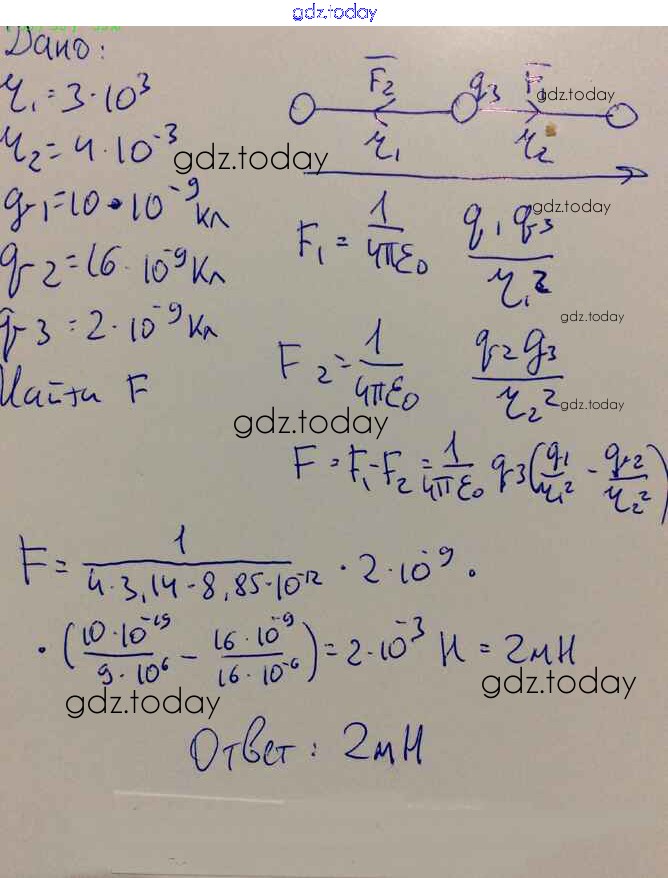 gdz.today
Дано:
r₁ = 3·10³
r₂ = 4·10⁻³
q1 = 10·10⁻⁹ Кл
q2 = 16·10⁻⁹ Кл
q3 = 2·10⁻⁹ Кл
Найти F
F₂ q3 F gdz.today
r₁ r₂
gdz.today
F₁ = 1/4πε₀ q₁q₃/r₁²
gdz.today
gdz.today
F₂ = 1/4πε₀ q₂q₃/r₂²
gdz.today
gdz.today
F = F₁ - F₂ = 1/4πε₀ q3(q₁/r₁² - q₂/r₂²)
F = 1/4·3,14·8,85·10⁻¹² · 2·10⁻⁹ ·
· (10·10⁻¹⁹/9·10⁶ - 16·10⁻⁹/16·10⁻⁶) = 2·10⁻³ Н = 2мН
gdz.today
gdz.today
Ответ: 2мН